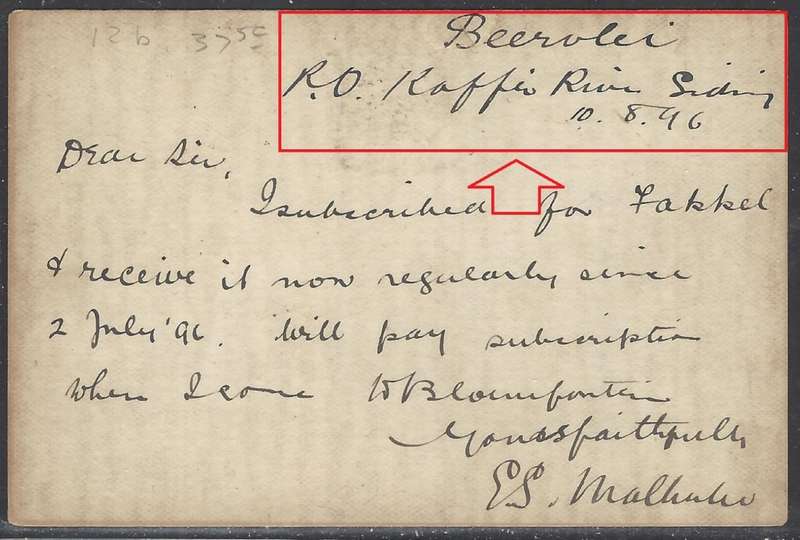 12b 375c
Beervlei
P.O. Kaffir River Siding
10.8.96
Dear Sir,
I subscribed for Fakkel
& receive it now regularly since
2 July '96. Will pay subscription
when I come to Bloemfontein
Yours faithfully
E.S.